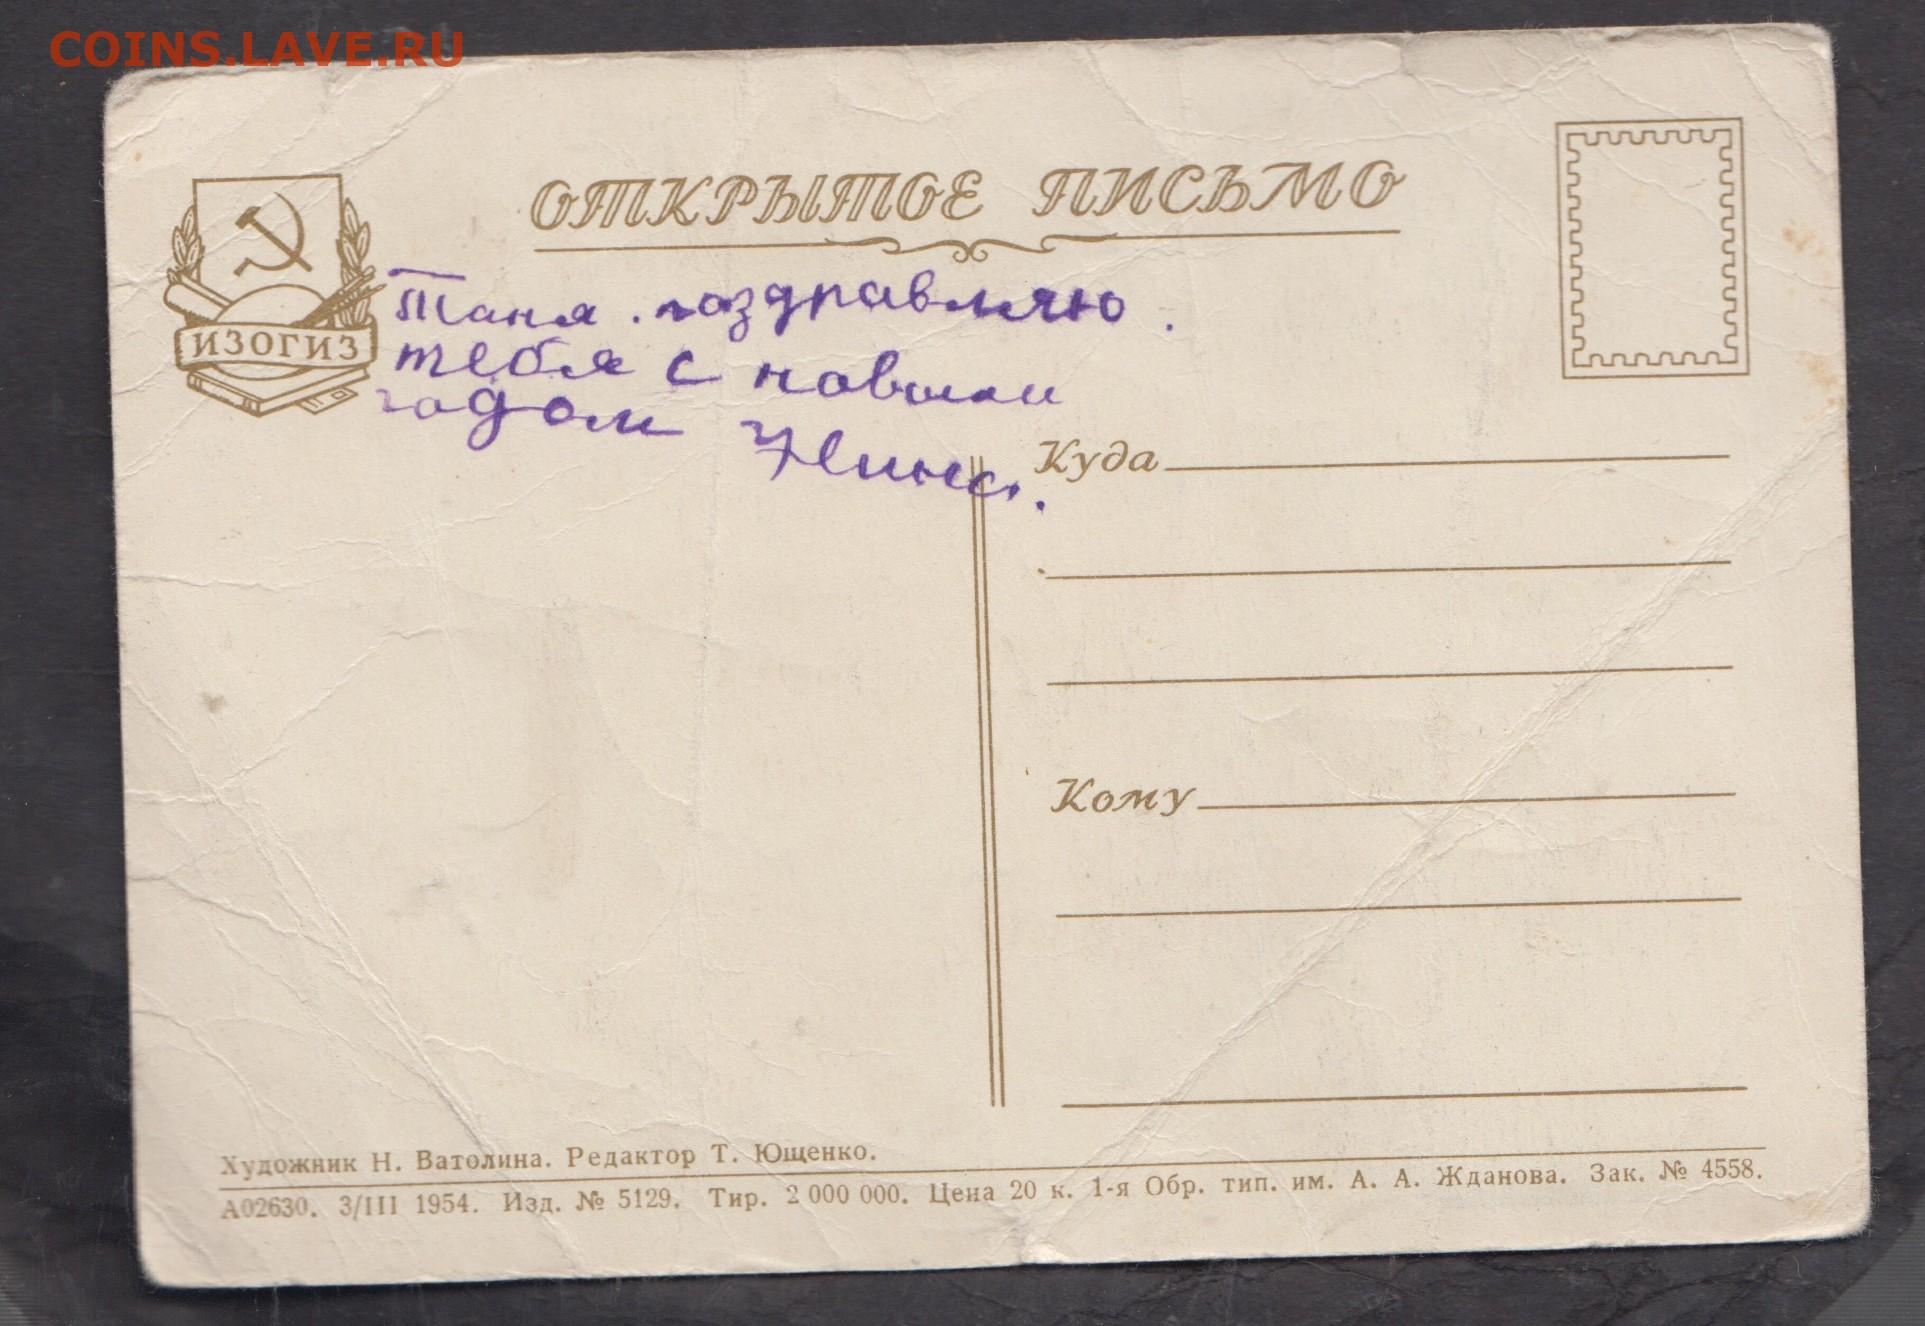 COINS.LAVE.RU
ОТКРЫТОЕ ПИСЬМО
ИЗОГИЗ
Таня. поздравляю.
тебя с новым
годом Нина.
Куда
Кому
Художник Н. Ватолина. Редактор Т. Ющенко.
А02630. 3/III 1954. Изд. № 5129. Тир. 2 000 000. Цена 20 к. 1-я Обр. тип. им. А. А. Жданова. Зак. № 4558.